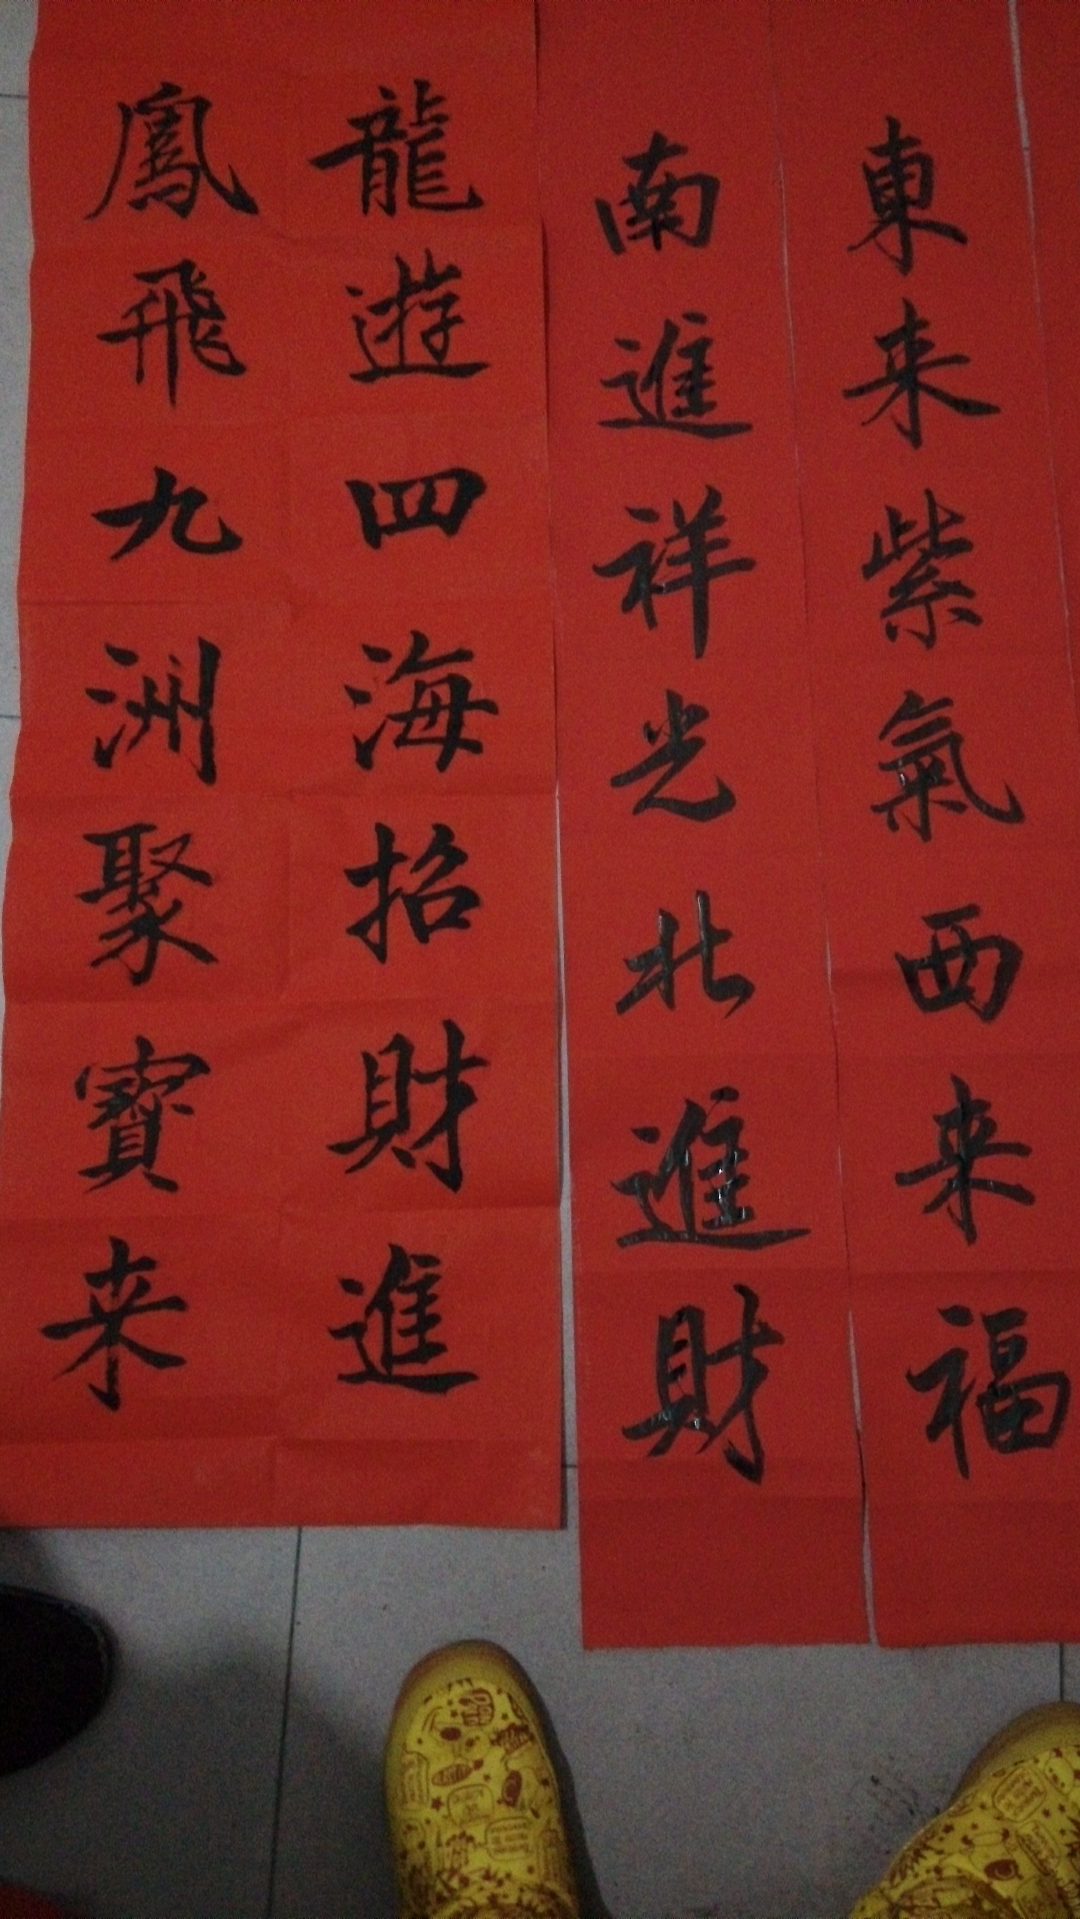 東来紫氣西来福
南進祥光北進財
龍遊四海招財進
鳳飛九洲聚寳来